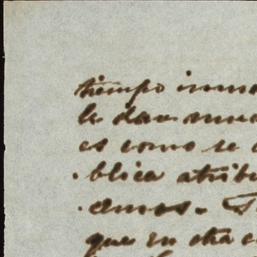 tiempo inme
le dan mue
es como se
blica atribu
amos.
que en otra